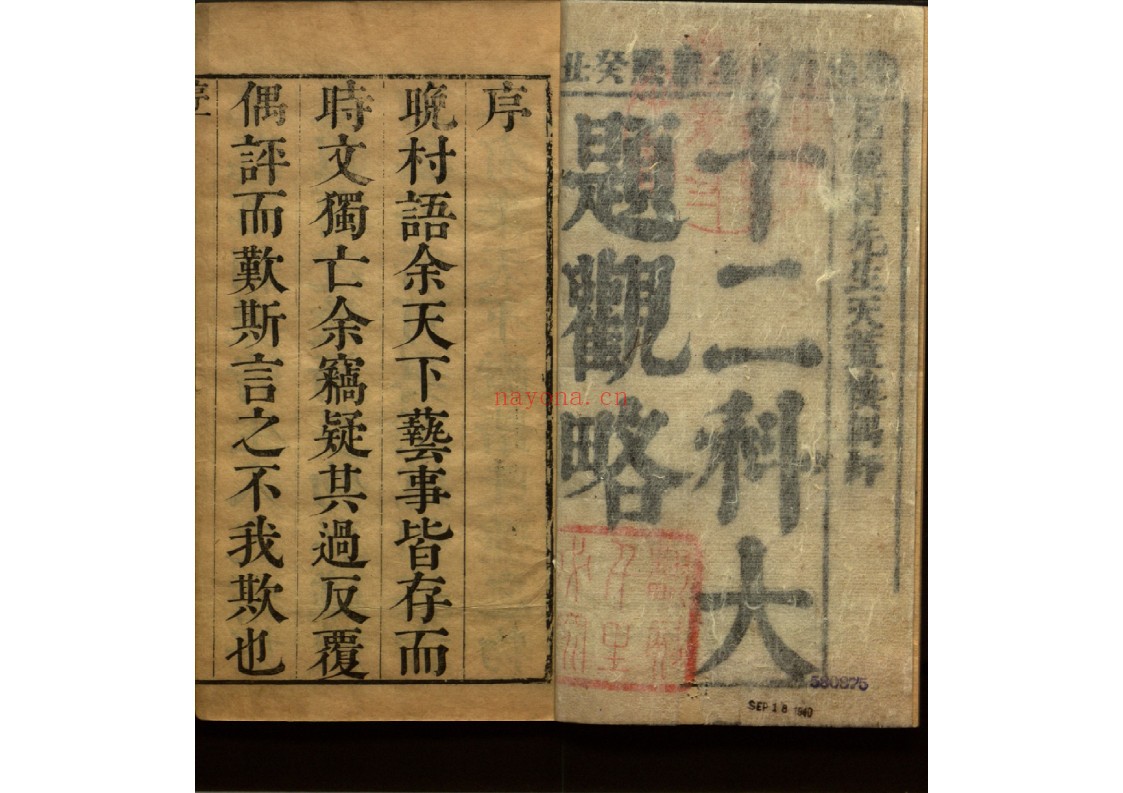 癸丑
先生天蓋樓偶評
十二科大
題觀略
580875
SEP 18 1940
序
晚村語余天下藝事皆存而
時文獨亡余竊疑其過反覆
偶評而歎斯言之不我欺也
序
nayona.cn